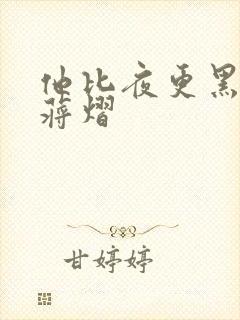 他比夜更黑
蒋熠
甘婷婷